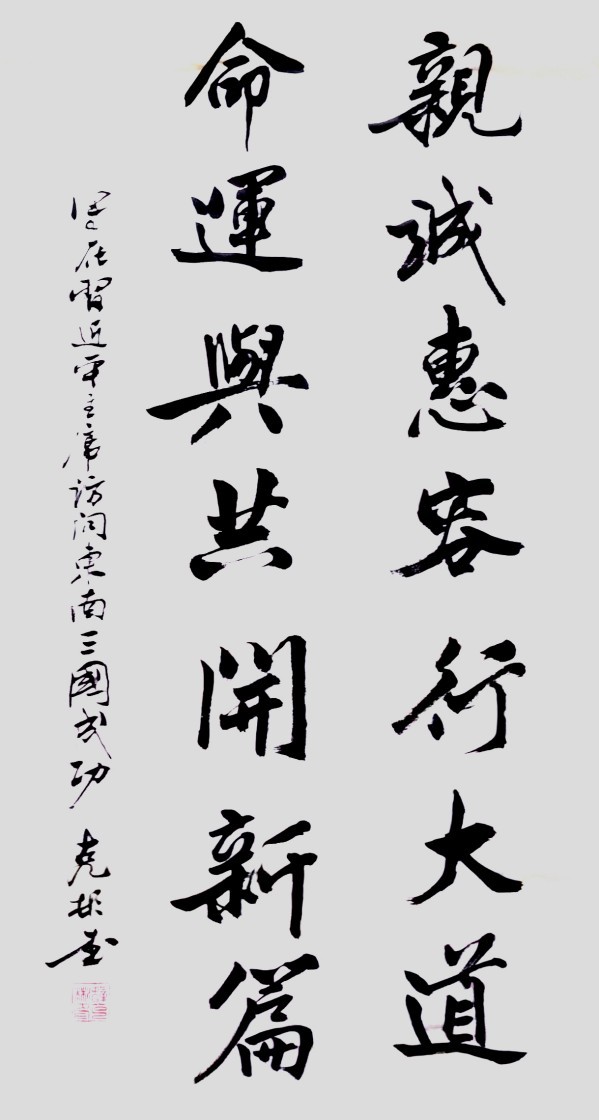 親誠惠容行大道
命運與共開新篇
習近平主席訪問東南三國成功 克彬書